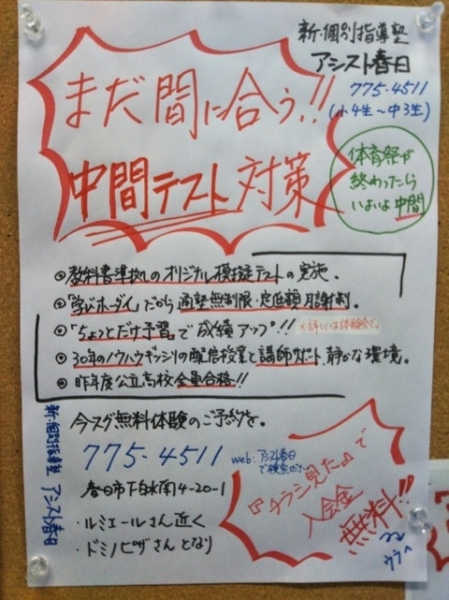 新・個別指導塾
アシスト春日
775-4511
(小4生～中3生)
まだ間に合う!!
中間テスト対策
体育祭が
終わったら
いよいよ中間
◎教科書準拠のオリジナル模擬テストの実施。
◎「学びホーダイ」だから通塾無制限・定価額月謝制。
◎「ちょっとだけ予習」で成績アップ!!
※詳しくは体験会で。
◎30年のノウハウギッシリの配信授業と講師サポート、静かな環境。
◎昨年度公立高校全員合格!!
今スグ無料体験のご予約を。
775-4511
web:アシスト春日
で検索
春日市下白水南4-20-1
・ルミエールさん近く
・ドミノピザさんとなり
新・個別指導塾 アシスト春日
『チラシ見た』で
入会金
無料!!
ウラへ